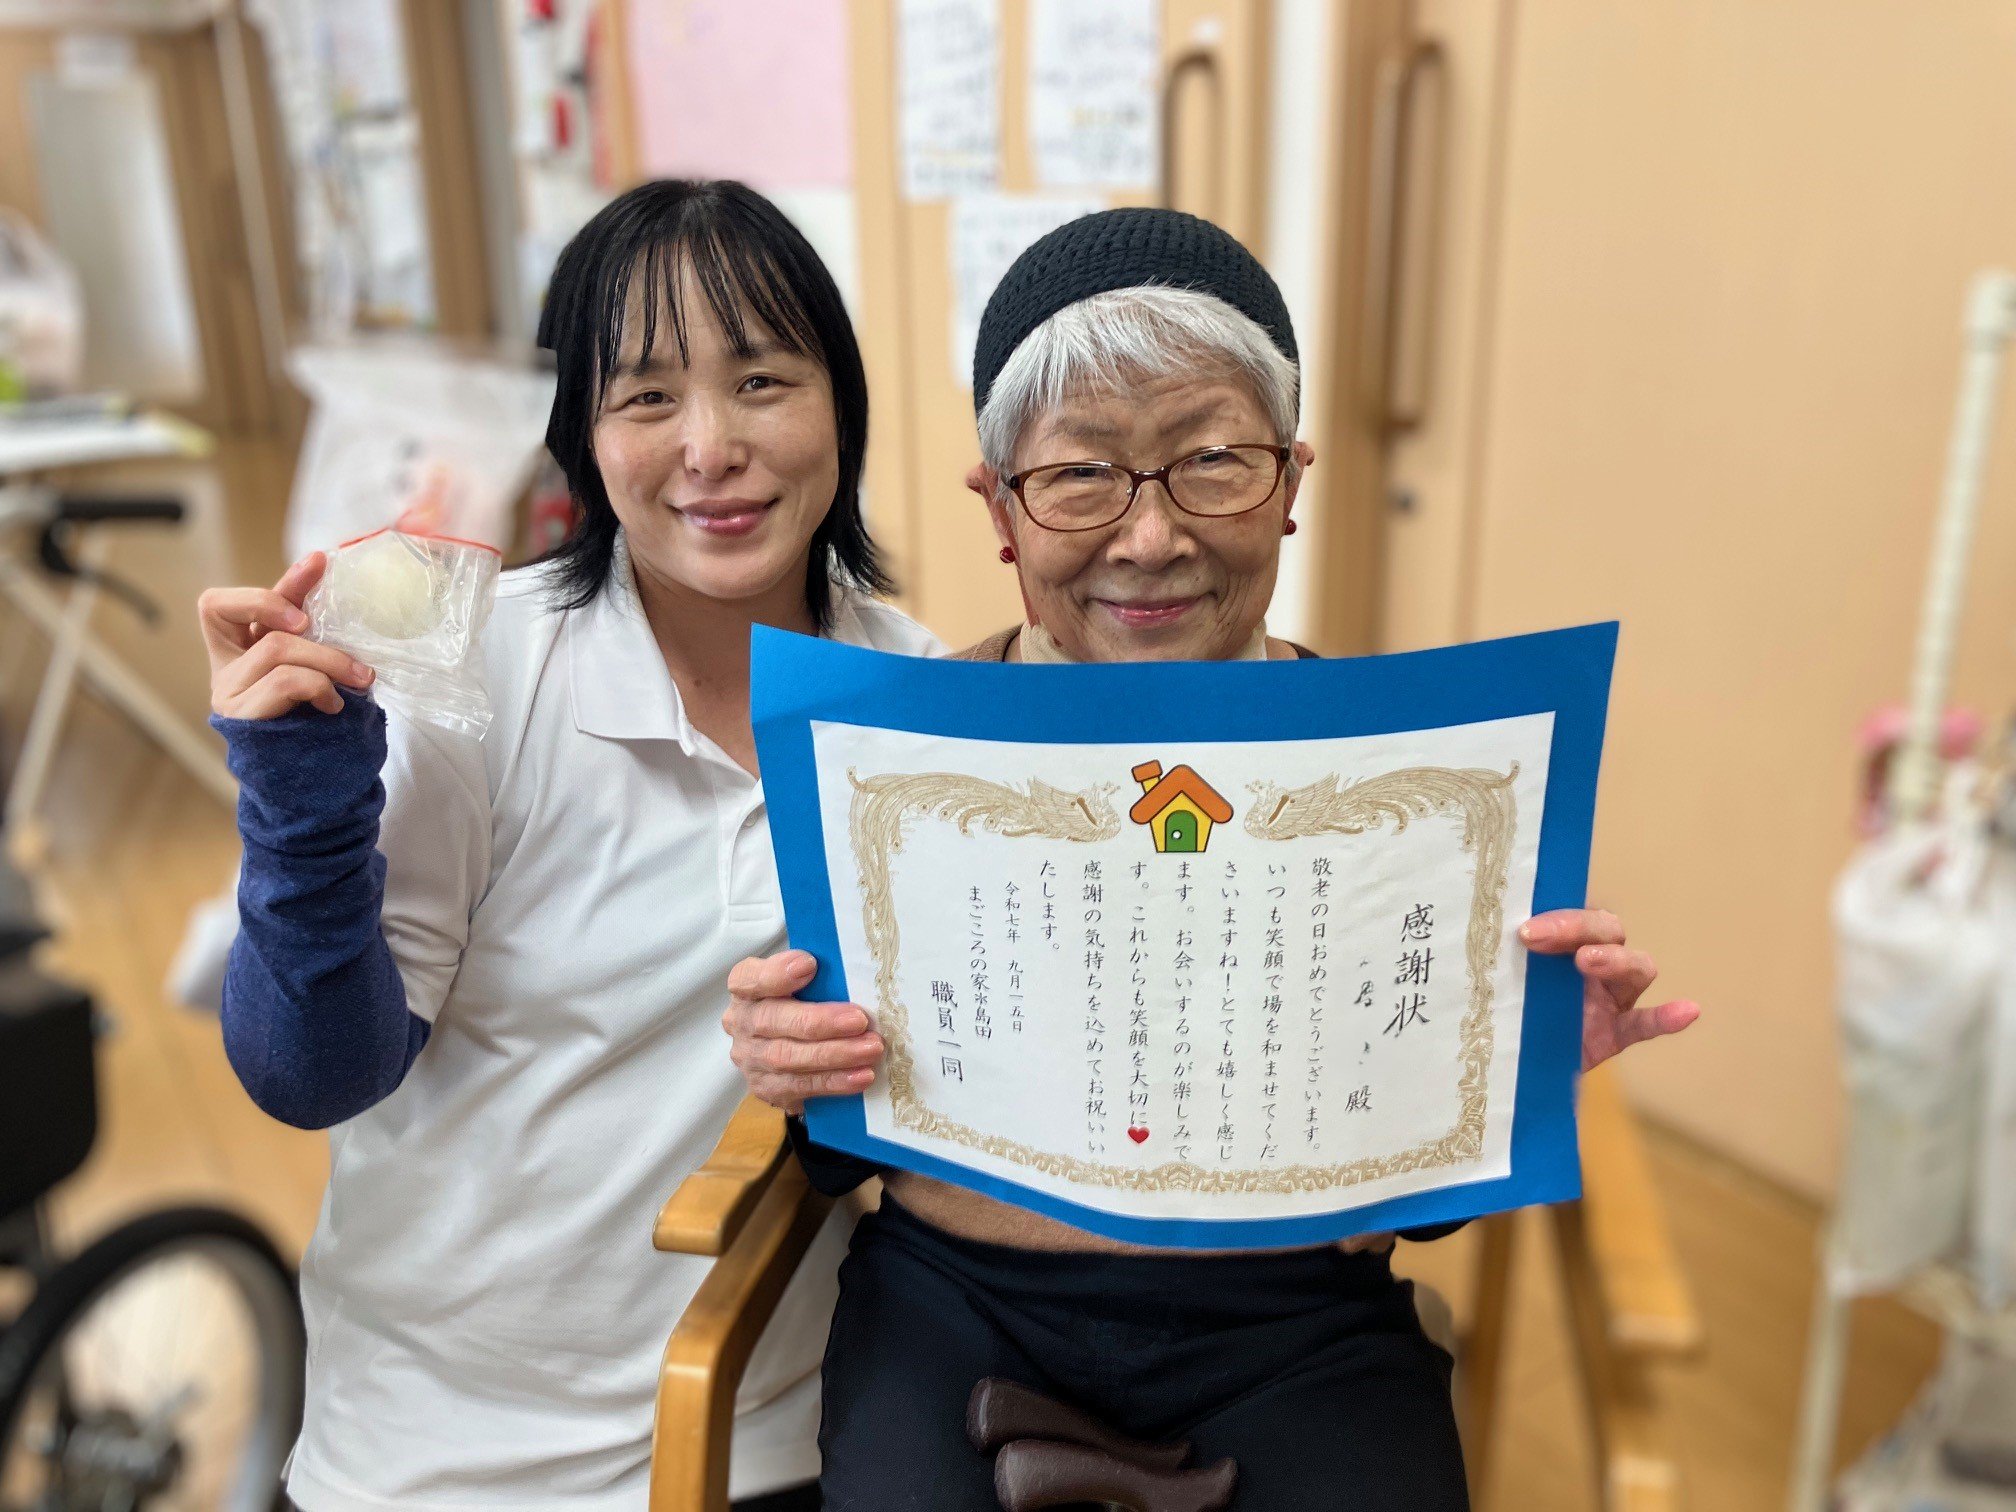 感謝状
殿
敬老の日おめでとうございます。
いつも笑顔で場を和ませてくだ
さいますね!とても嬉しく感じ
ます。お会いするのが楽しみで
す。これからも笑顔を大切に❤
感謝の気持ちを込めてお祝いい
たします。
令和七年 九月一五日
まごころの家水島田
職員一同